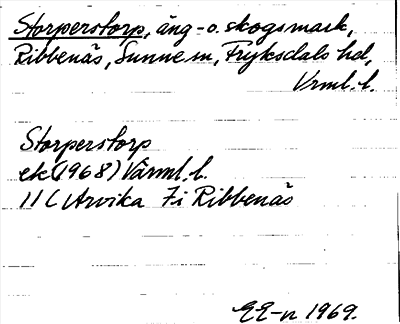 Storperstorp, äng- o. skogsmark,
Ribbenäs, Sunne sn, Fryksdals hd,
Vrml. l.
Storperstorp
ek (1968) Värml. l.
11 C Arvika 7 i Ribbenäs
EE-n 1969.